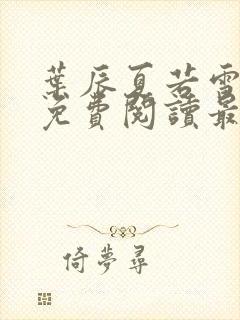 葉辰夏若雪
免費閱讀最
倚夢尋